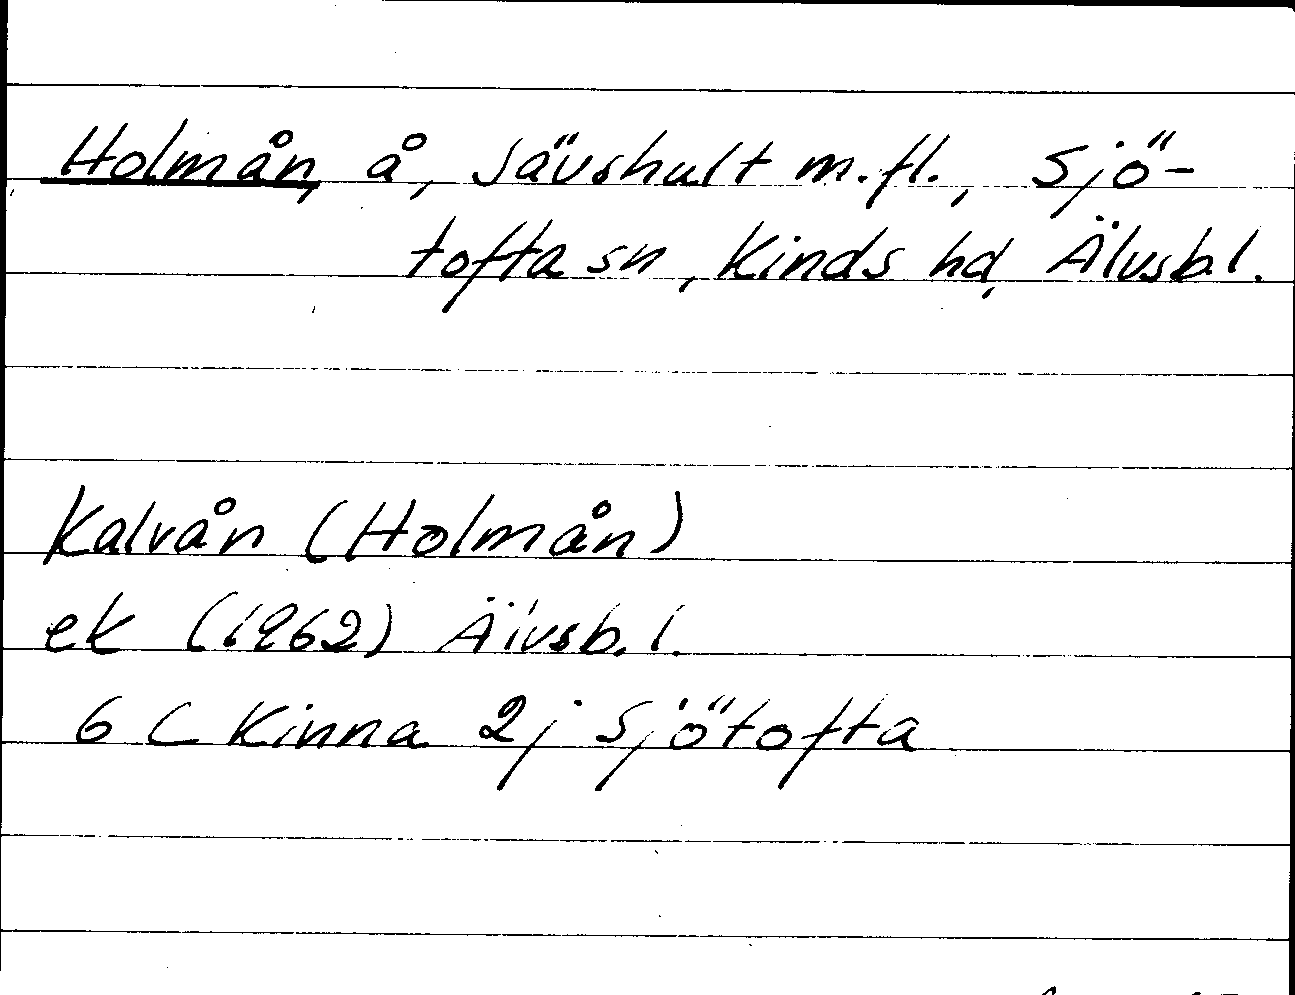 Holmån, å, Sävshult m.fl., Sjö-
tofta sn, Kinds hd, Älvsb.l.
Kalvån (Holmån)
ek (1962) Älvsb.l.
6 C Kinna 2j Sjötofta